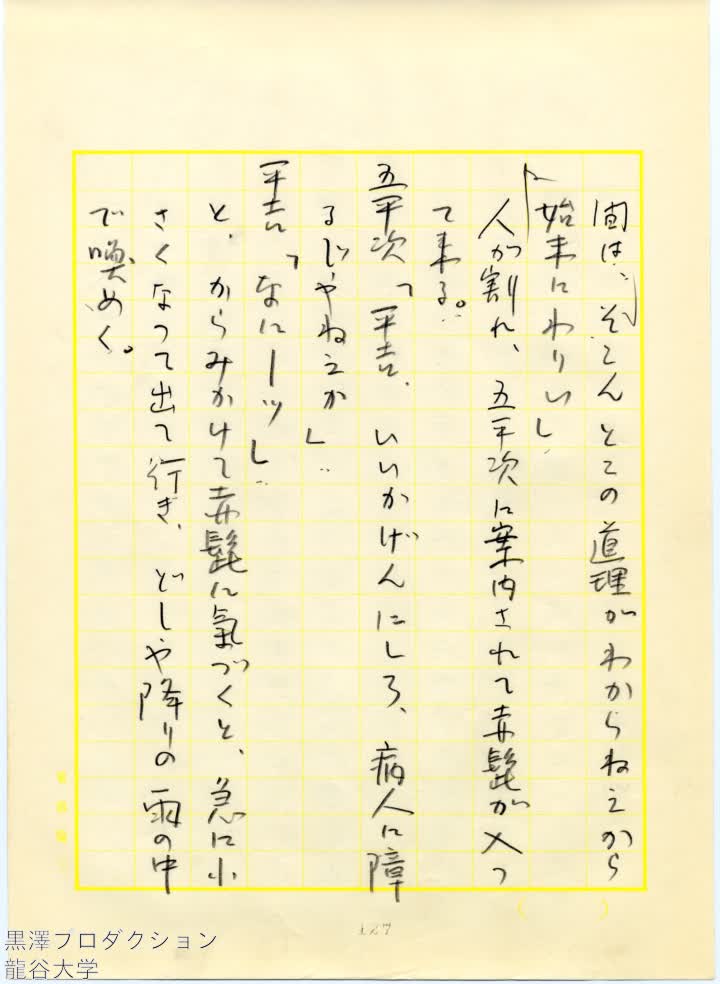 間は、そこんとこの道理がわからねえから
始末にわりい」
人が割れ、五平次に案内されて赤髭が入つ
て来る。
五平次「平吉、いいかげんにしろ、病人に障
るじやねえか」
平吉「なにーッ」
と、からみかけて赤髭に氣づくと、急に小
さくなつて出て行き、どしや降りの雨の中
で喚めく。
127
黒澤プロダクション
龍谷大学